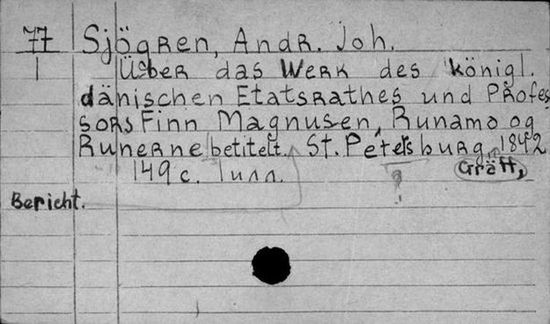 77 Sjögren, Andr. Joh.
Über das Werk des königl.
dänischen Etatsrathes und Profes
sors Finn Magnusen, Runamo og
Runerne betitelt. St. Petersburg, 1842
149 c. Gräff,
Bericht.